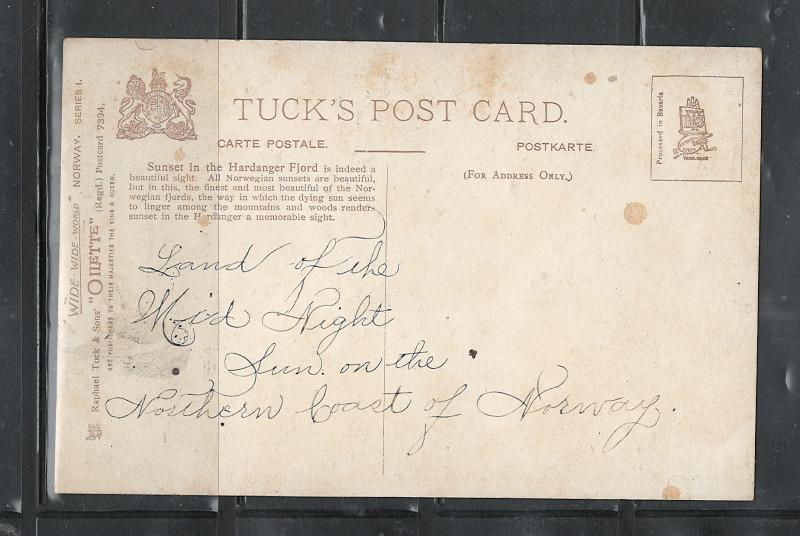 TUCK'S POST CARD.
CARTE POSTALE.
POSTKARTE.
(FOR ADDRESS ONLY.)
Processed in Bavaria
Sunset in the Hardanger Fjord is indeed a
beautiful sight. All Norwegian sunsets are beautiful,
but in this, the finest and most beautiful of the Nor-
wegian fjords, the way in which the dying sun seems
to linger among the mountains and woods renders
sunset in the Hardanger a memorable sight.
"WIDE-WIDE-WORLD" NORWAY. SERIES I.
Raphael Tuck & Sons' "OILETTE" (Regd.) Postcard 7394.
ART PUBLISHERS TO THEIR MAJESTIES THE KING & QUEEN.
Land of the
Mid Night
Sun. on the
Northern Coast of Norway.